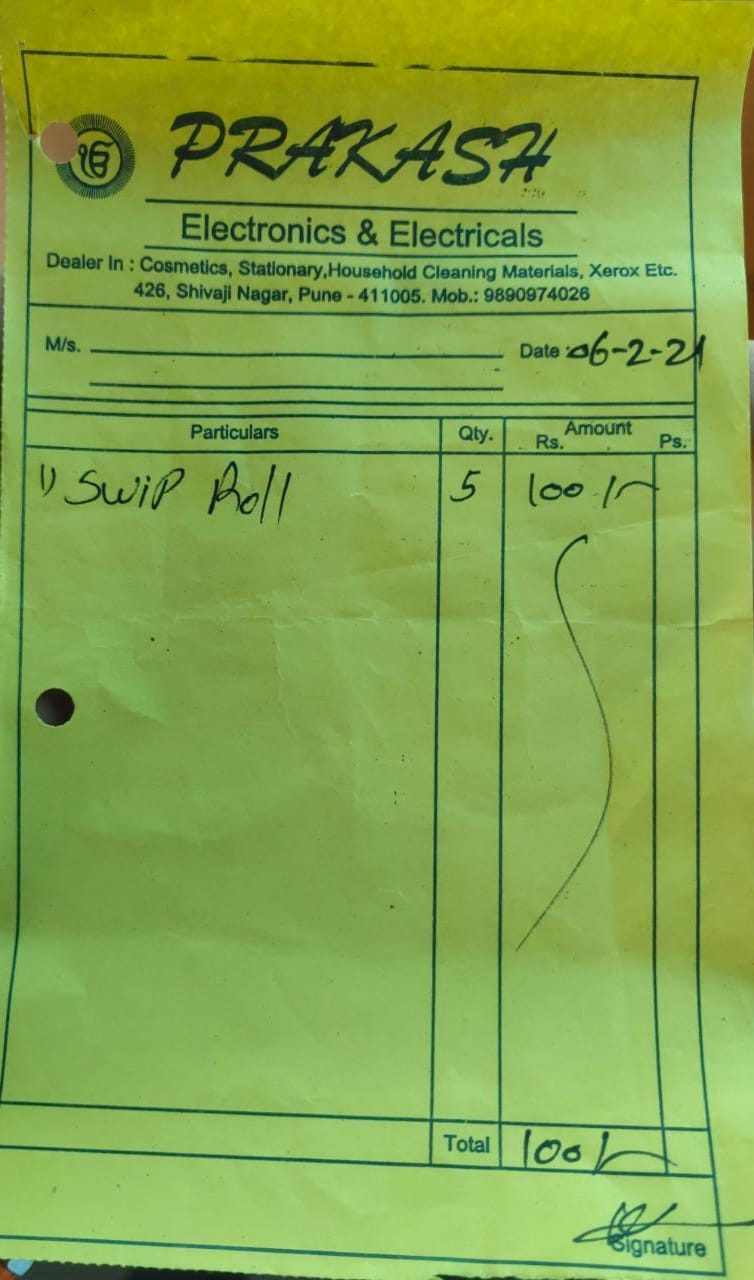 ੴ
PRAKASH
Electronics & Electricals
Dealer In : Cosmetics, Stationary,Household Cleaning Materials, Xerox Etc.
426, Shivaji Nagar, Pune - 411005. Mob.: 9890974026
M/s. Date : 06-2-21
Particulars Qty. Amount
Rs. Ps.
1) SWiP Roll 5 100/-
Total 100/-
Signature